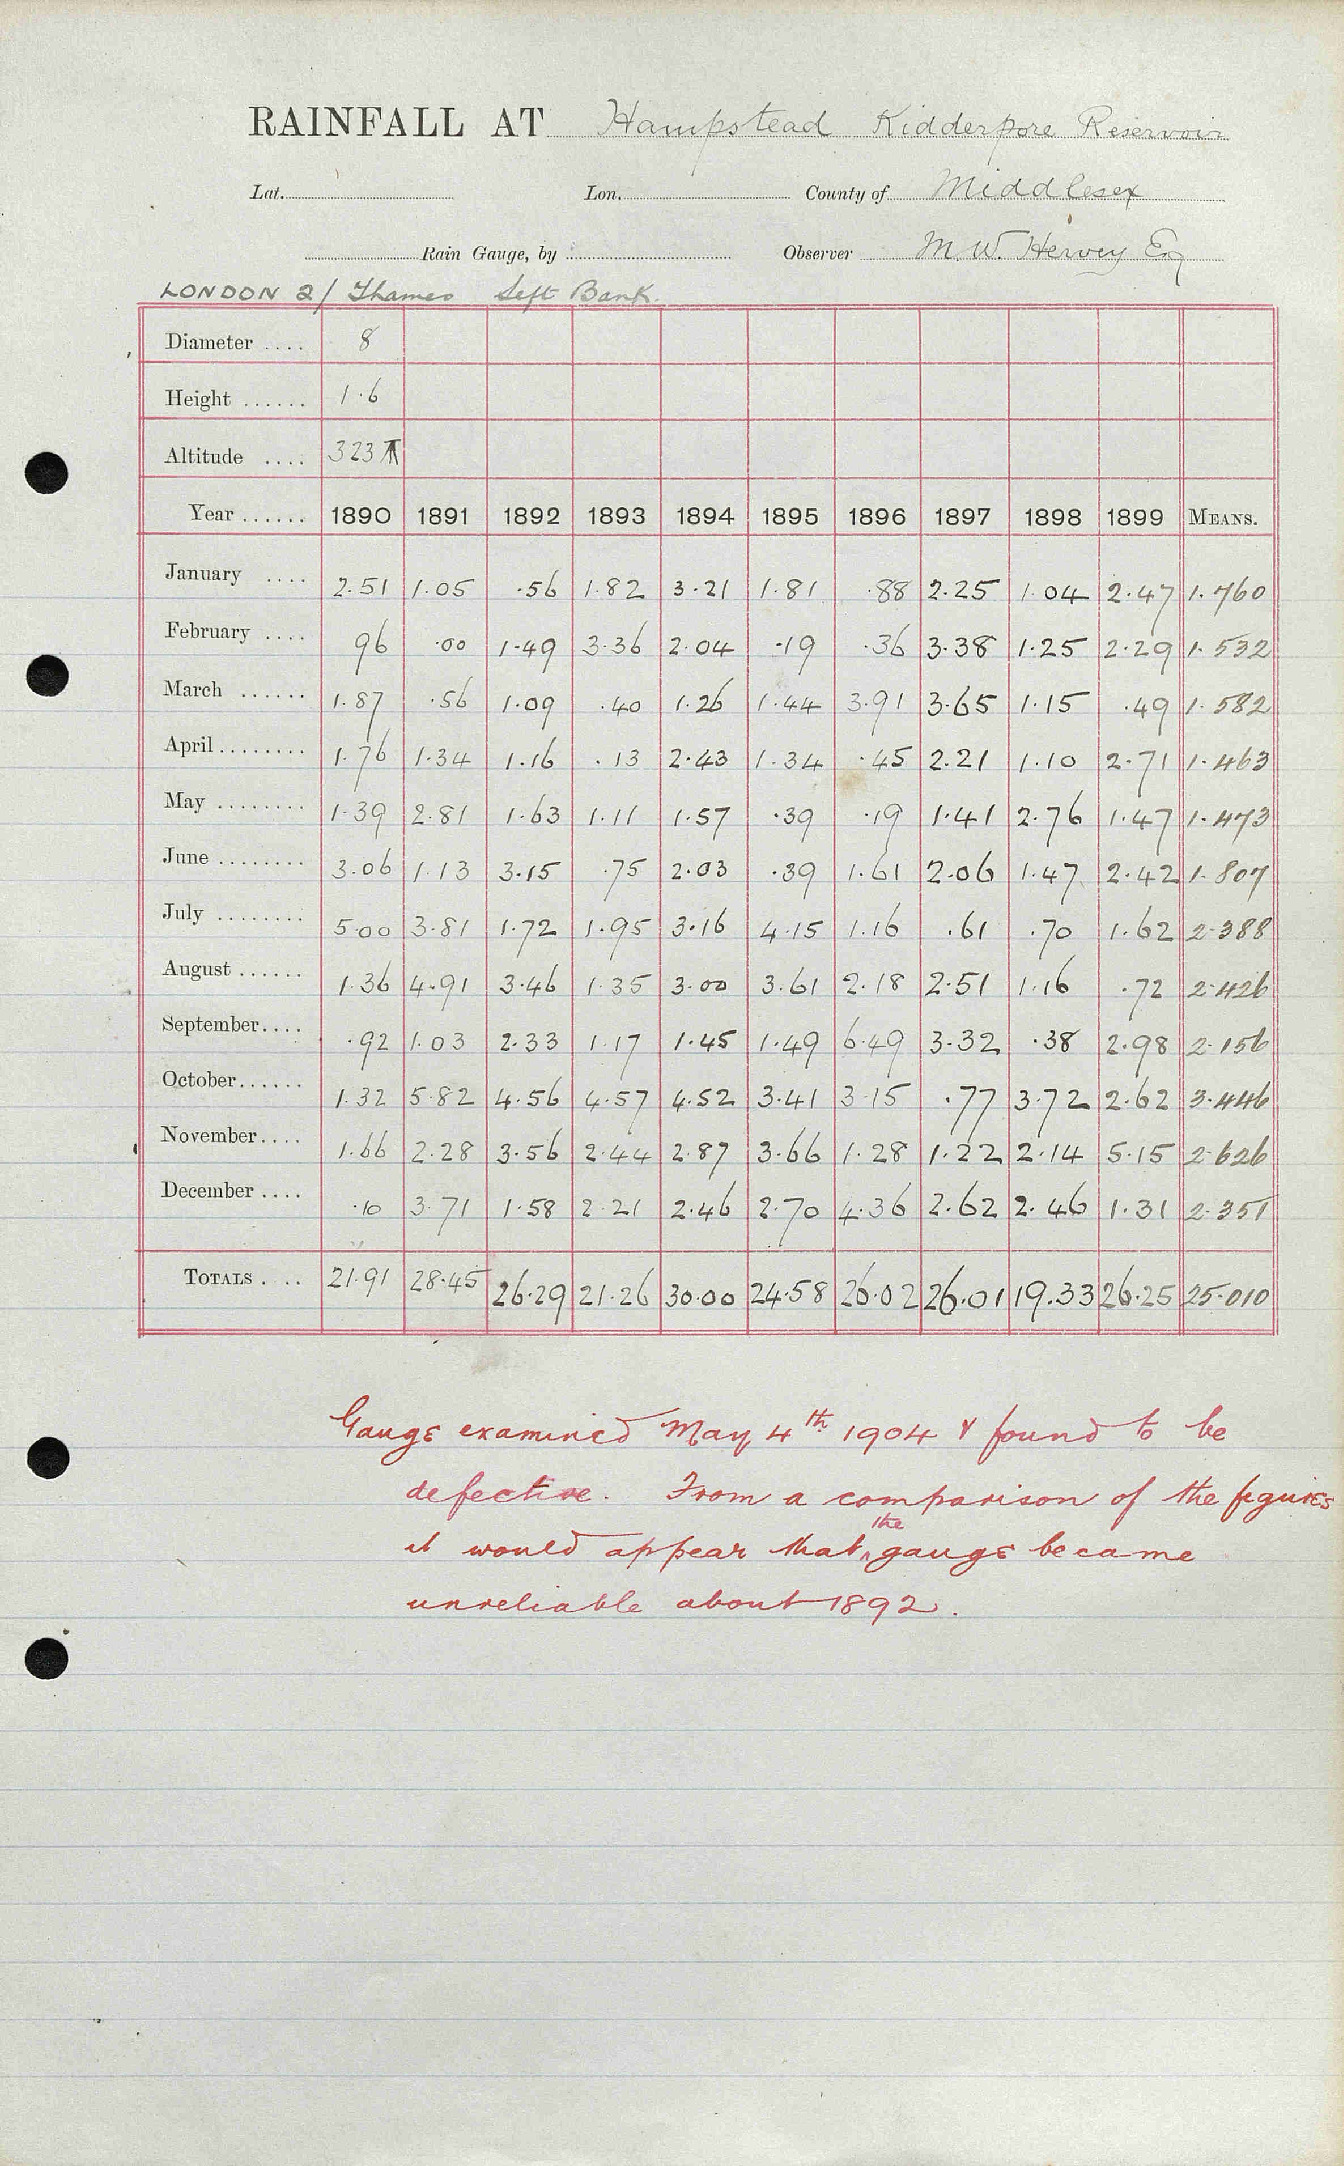 RAINFALL AT Hampstead Kidderpore Reservoir
Lat. Lon. County of Middlesex
Rain Gauge, by Observer M W. Hervey Esq
LONDON 2/ Thames Left Bank.
Diameter .... 8
Height ...... 1.6
Altitude .... 323
Year ...... 1890 1891 1892 1893 1894 1895 1896 1897 1898 1899 MEANS.
January .... 2.51 1.05 .56 1.82 3.21 1.81 .88 2.25 1.04 2.47 1.760
February .... 96 .00 1.49 3.36 2.04 .19 .36 3.38 1.25 2.29 1.532
March ...... 1.87 .56 1.09 .40 1.26 1.44 3.91 3.65 1.15 .49 1.582
April ........ 1.76 1.34 1.16 .13 2.43 1.34 .45 2.21 1.10 2.71 1.463
May ........ 1.39 2.81 1.63 1.11 1.57 .39 .19 1.41 2.76 1.47 1.473
June ........ 3.06 1.13 3.15 .75 2.03 .39 1.61 2.06 1.47 2.42 1.807
July ........ 5.00 3.81 1.72 1.95 3.16 4.15 1.16 .61 .70 1.62 2.388
August ...... 1.36 4.91 3.46 1.35 3.00 3.61 2.18 2.51 1.16 .72 2.426
September .... .92 1.03 2.33 1.17 1.45 1.49 6.49 3.32 .38 2.98 2.156
October ...... 1.32 5.82 4.56 4.57 4.52 3.41 3.15 .77 3.72 2.62 3.446
November .... 1.66 2.28 3.56 2.44 2.87 3.66 1.28 1.22 2.14 5.15 2.626
December .... .10 3.71 1.58 2.21 2.46 2.70 4.36 2.62 2.46 1.31 2.351
TOTALS .... 21.91 28.45 26.29 21.26 30.00 24.58 26.02 26.01 19.33 26.25 25.010
Gauge examined May 4th 1904 & found to be
defective. From a comparison of the figures
it would appear that the gauge became
unreliable about 1892.